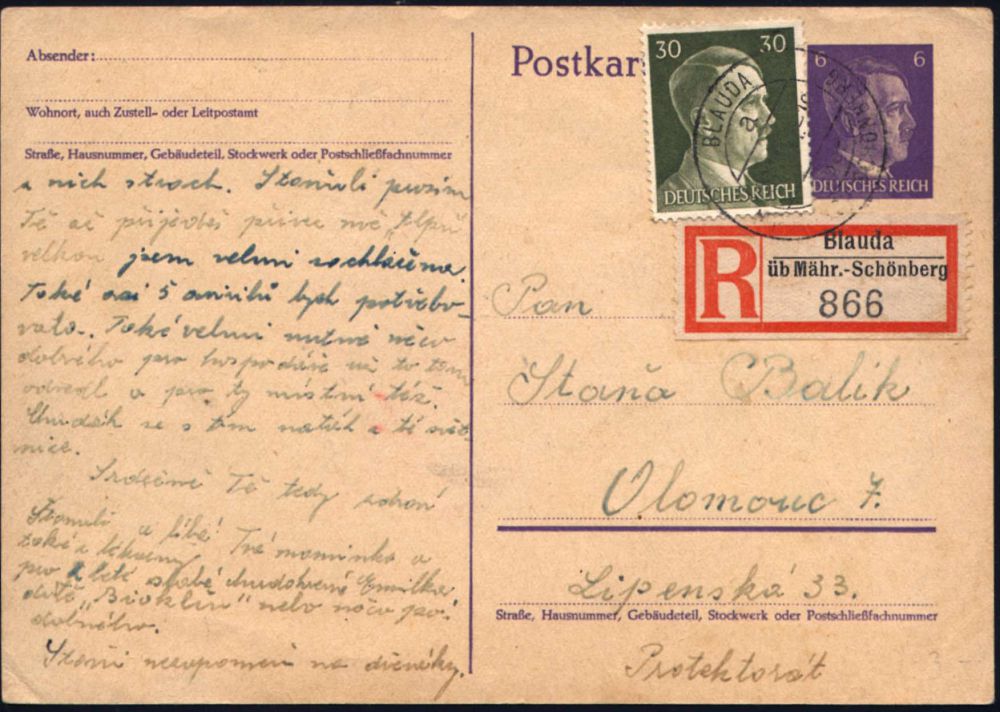 Absender:
Wohnort, auch Zustell- oder Leitpostamt
Straße, Hausnummer, Gebäudeteil, Stockwerk oder Postschließfachnummer
z nich strach. Stanuli prosím
Tě až přijedeš přivez mě
velkou jsem velmi nachlazena.
Také asi 5 bych potřebo-
vala. Také velmi nutně něco
dobrého pro hospodáře už to tam
a pro ty místní též.
Chudák se s tím a té
nice.
Srdečně Tě tedy zdraví
Stanuli a líbá Tvá maminka a
také z lékárny
pro 2 leté slabé Emilka
dítě "Bioklin" nebo něco po-
dobného.
nezapomeň na
Postkar
30 30
DEUTSCHES REICH
6 6
DEUTSCHES REICH
BLAUDA
a
R
Blauda
üb Mähr.-Schönberg
866
Pan
Staňa Balík
Olomouc 7.
Lipenská 33.
Straße, Hausnummer, Gebäudeteil, Stockwerk oder Postschließfachnummer
Protektorát
3